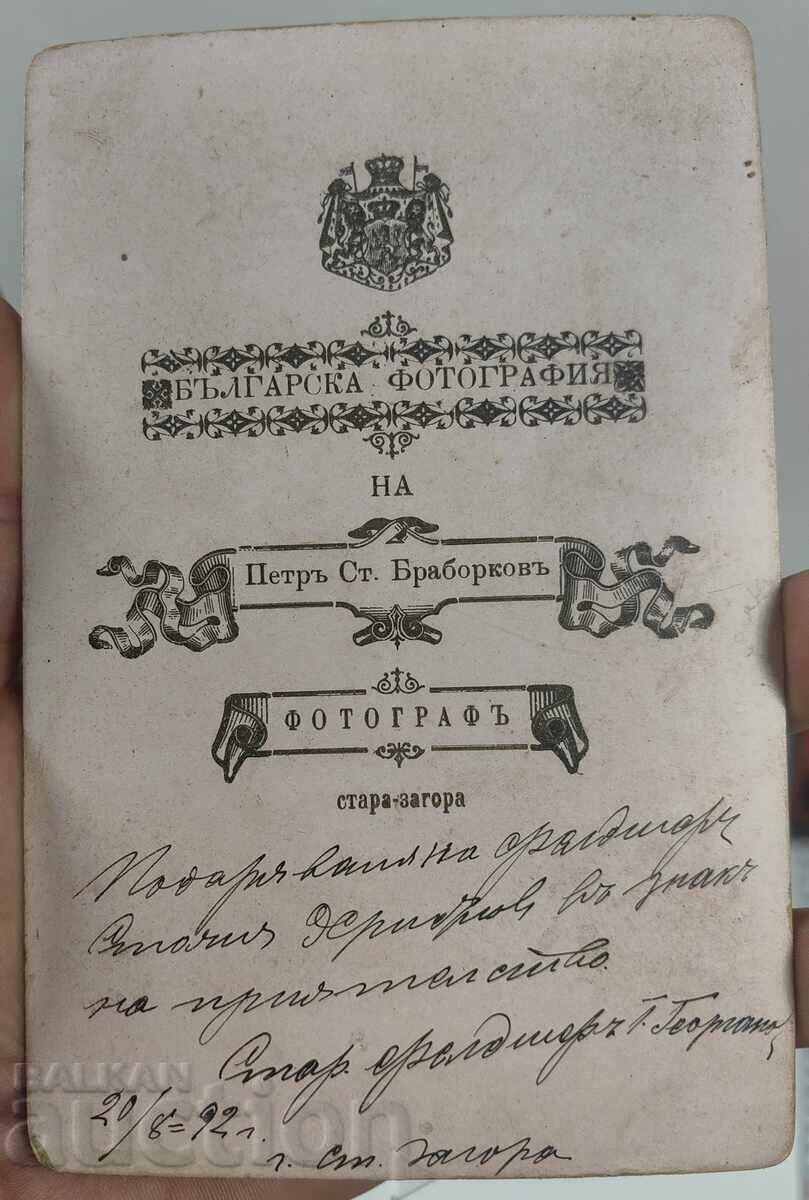 БЪЛГАРСКА ФОТОГРАФИЯ
НА
Петръ Ст. Браборковъ
ФОТОГРАФЪ
стара-загора
Подарявамъ на фелдшеръ
въ знакъ
на приятелство.
Стар. фелдшеръ Г.
20/8=92 г.
г. ст. загора
BALKAN
auction